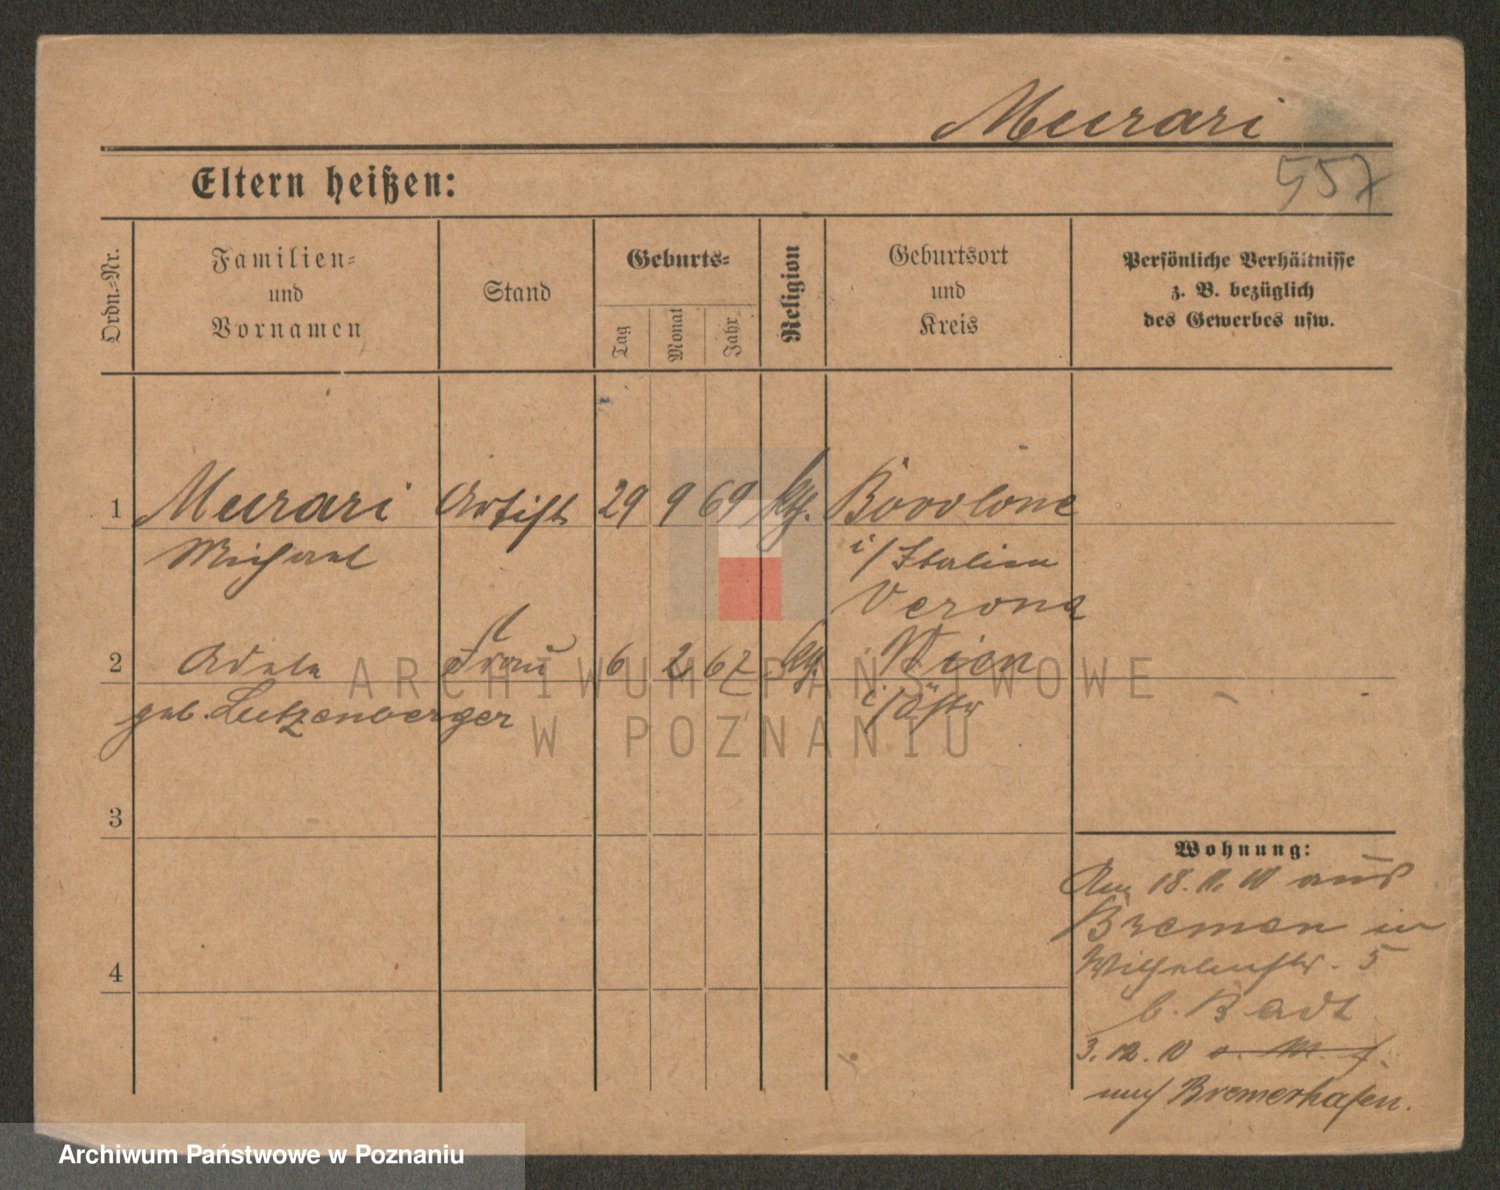 Murari
557
Eltern heißen:
Ordn.-Nr.
Familien- und Vornamen
Stand
Geburts-
Tag
Monat
Jahr
Religion
Geburtsort und Kreis
Persönliche Verhältnisse
z. B. bezüglich
des Gewerbes usw.
1 Murari Artist 29 9 69 kth. Bovolone
Michael i/Italien
Verona
2 Adele Frau 6 2 67 kth. Wien
geb. Lutzenberger i/Östr
3
4
Wohnung:
Am 18. 11. 10 aus
Bremen in
Wilhelmstr. 5
b. Badt
3. 12. 10
nach Bremerhafen.
ARCHIWUM PAŃSTWOWE
W POZNANIU
Archiwum Państwowe w Poznaniu